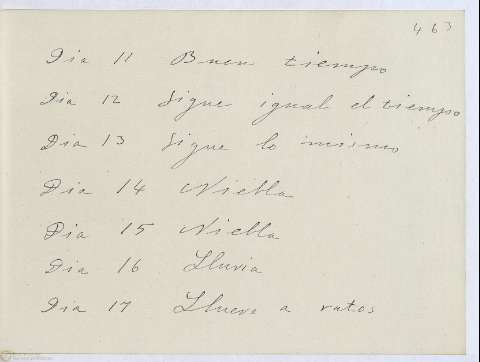 463
Dia 11 Buen tiempo
Dia 12 Sigue igual el tiempo
Dia 13 Sigue lo mismo
Dia 14 Niebla
Dia 15 Niebla
Dia 16 Lluvia
Dia 17 Llueve a ratos